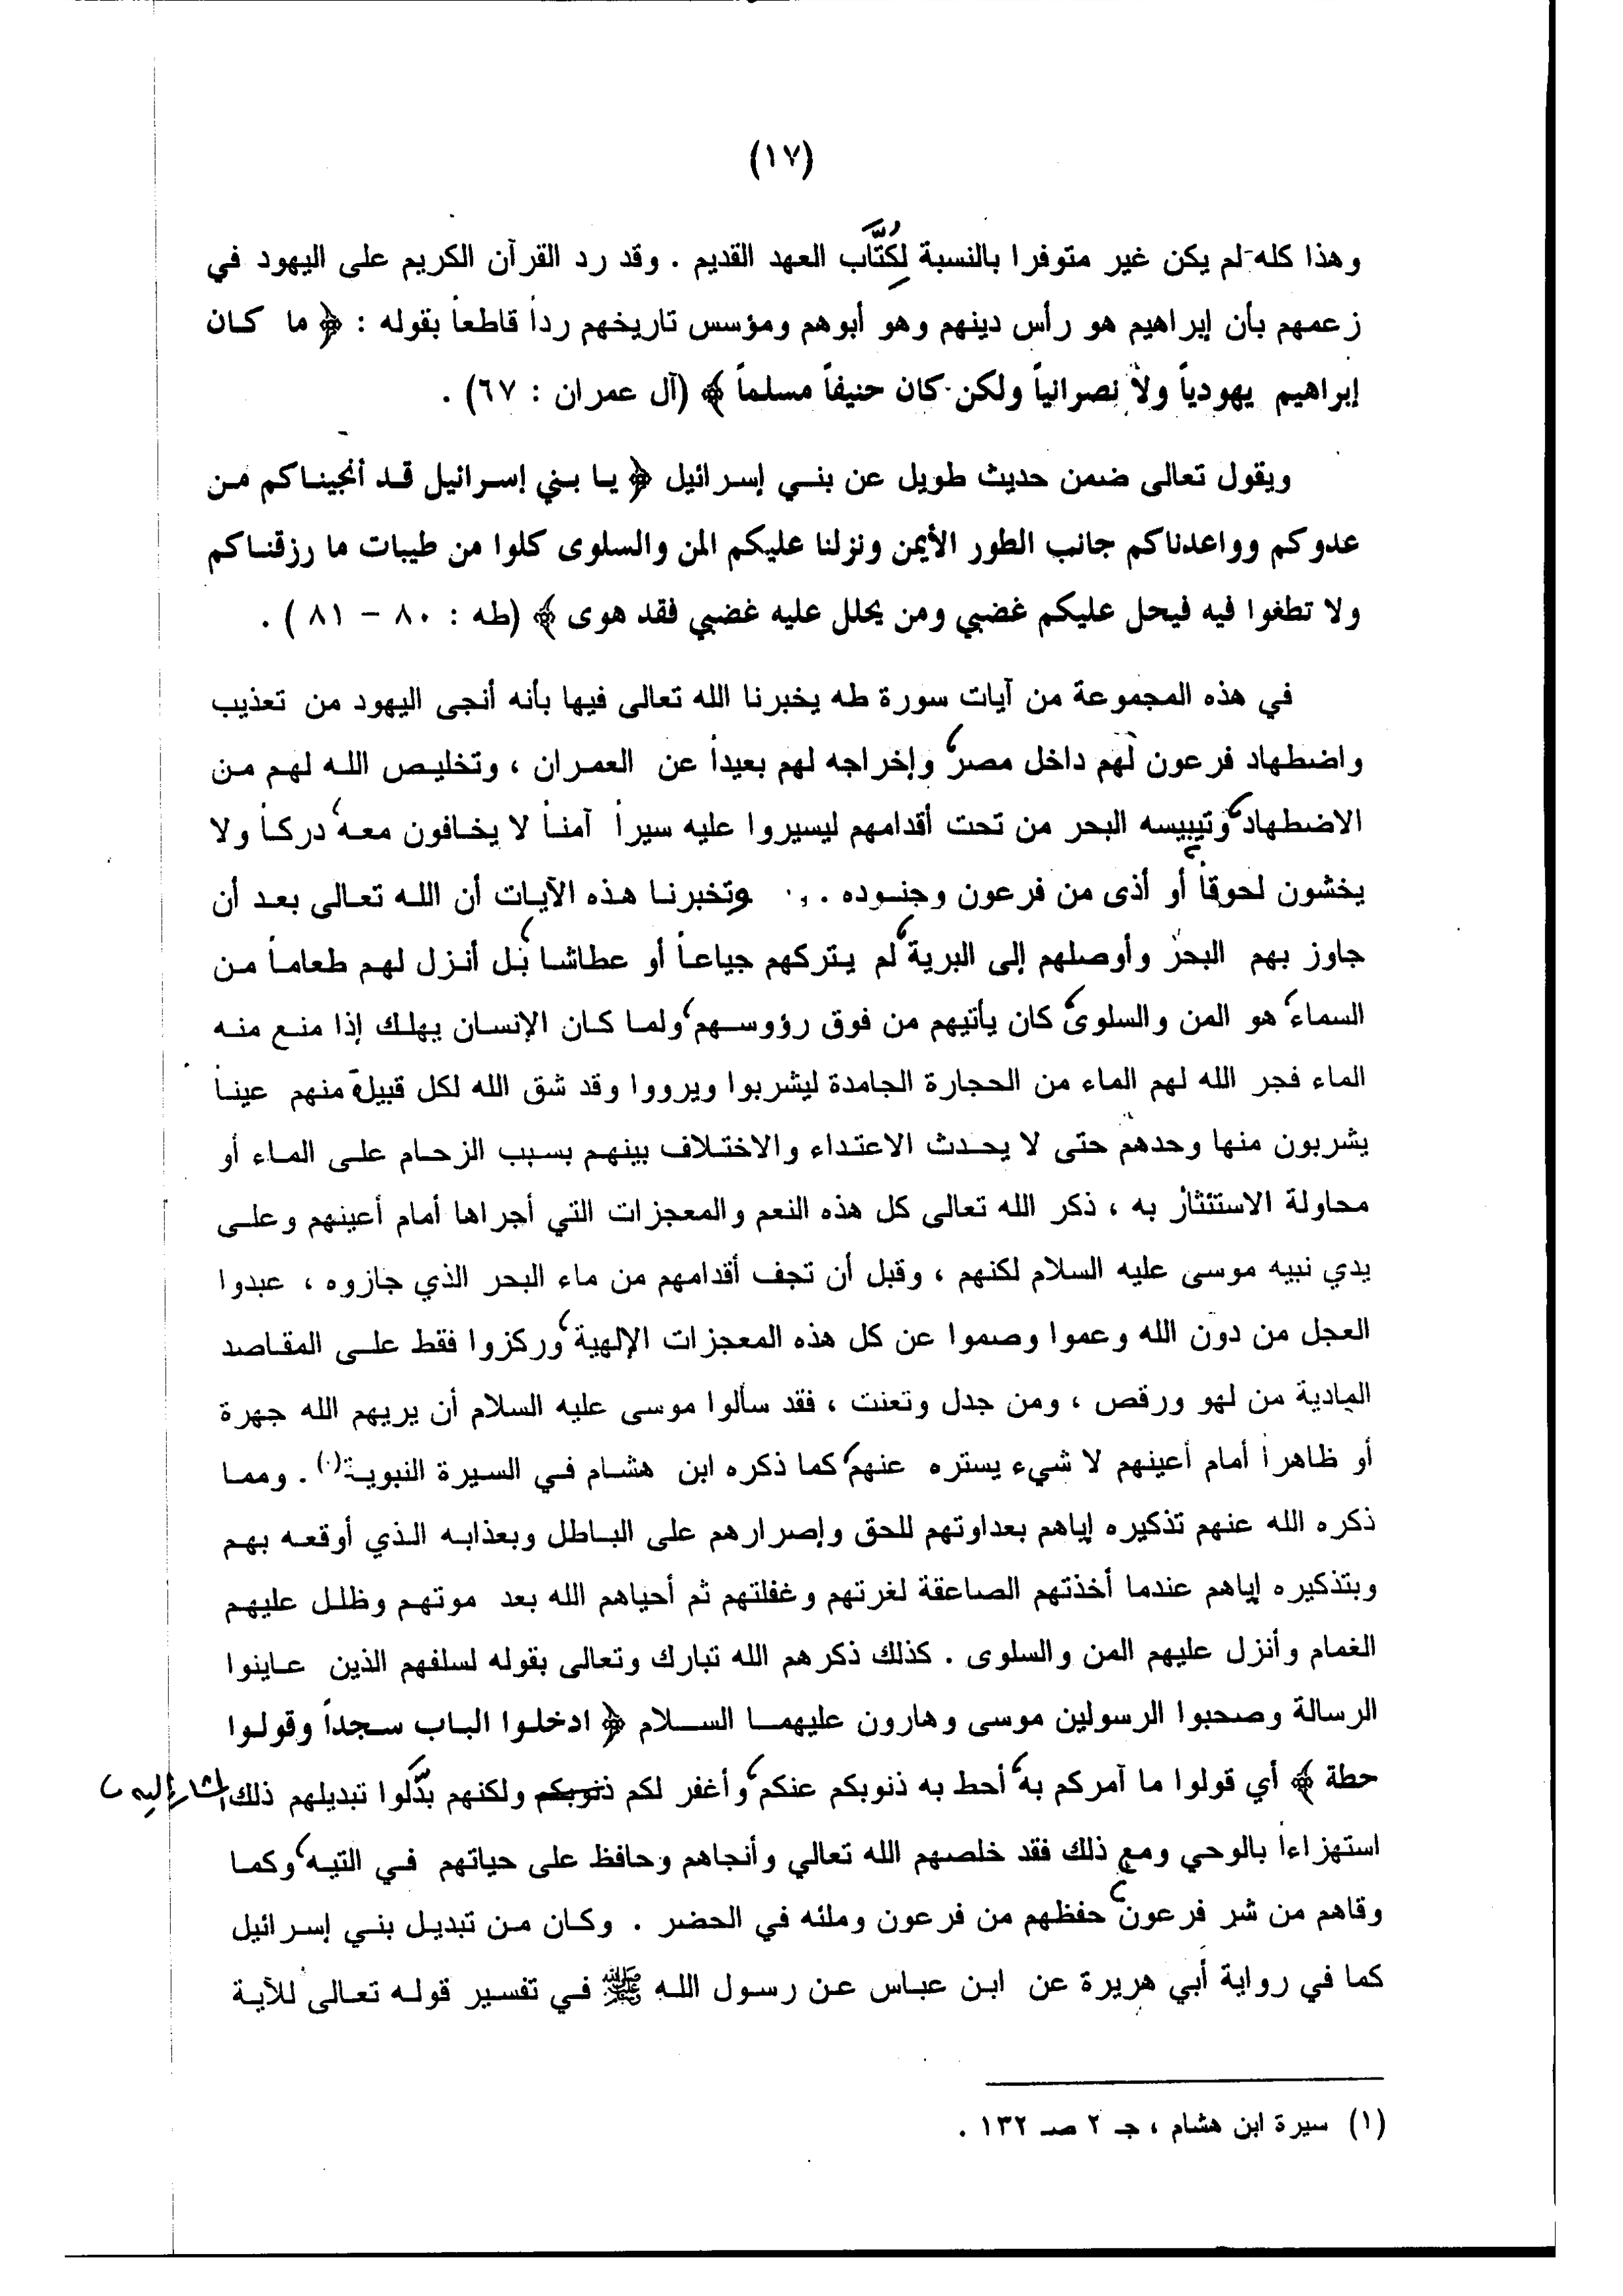 (١٧)
وهذا كله لم يكن غير متوفرا بالنسبة لِكُتَّاب العهد القديم . وقد رد القرآن الكريم على اليهود في
زعمهم بأن إبراهيم هو رأس دينهم وهو أبوهم ومؤسس تاريخهم رداً قاطعاً بقوله : ﴿ ما كان
إبراهيم يهودياً ولا نصرانياً ولكن كان حنيفاً مسلماً ﴾ (آل عمران : ٦٧) .
ويقول تعالى ضمن حديث طويل عن بني إسرائيل ﴿ يا بني إسرائيل قد أنجيناكم من
عدوكم وواعدناكم جانب الطور الأيمن ونزلنا عليكم المن والسلوى كلوا من طيبات ما رزقناكم
ولا تطغوا فيه فيحل عليكم غضبي ومن يحلل عليه غضبي فقد هوى ﴾ (طه : ٨٠ – ٨١ ) .
في هذه المجموعة من آيات سورة طه يخبرنا الله تعالى فيها بأنه أنجى اليهود من تعذيب
واضطهاد فرعون لهم داخل مصر، وإخراجه لهم بعيداً عن العمران ، وتخليص الله لهم من
الاضطهاد، وتيبيسه البحر من تحت أقدامهم ليسيروا عليه سيراً آمناً لا يخافون معه، دركاً ولا
يخشون لحوقاً أو أذى من فرعون وجنوده . وتخبرنا هذه الآيات أن الله تعالى بعد أن
جاوز بهم البحر وأوصلهم إلى البرية، لم يتركهم جياعاً أو عطاشا، بل أنزل لهم طعاماً من
السماء، هو المن والسلوى، كان يأتيهم من فوق رؤوسهم، ولما كان الإنسان يهلك إذا منع منه
الماء فجر الله لهم الماء من الحجارة الجامدة ليشربوا ويرووا وقد شق الله لكل قبيلة منهم عيناً
يشربون منها وحدهم حتى لا يحدث الاعتداء والاختلاف بينهم بسبب الزحام على الماء أو
محاولة الاستئثار به ، ذكر الله تعالى كل هذه النعم والمعجزات التي أجراها أمام أعينهم وعلى
يدي نبيه موسى عليه السلام لكنهم ، وقبل أن تجف أقدامهم من ماء البحر الذي جازوه ، عبدوا
العجل من دون الله وعموا وصموا عن كل هذه المعجزات الإلهية، وركزوا فقط على المقاصد
المادية من لهو ورقص ، ومن جدل وتعنت ، فقد سألوا موسى عليه السلام أن يريهم الله جهرة
أو ظاهراً أمام أعينهم لا شيء يستره عنهم، كما ذكره ابن هشام في السيرة النبوية(١) . ومما
ذكره الله عنهم تذكيره إياهم بعداوتهم للحق وإصرارهم على الباطل وبعذابه الذي أوقعه بهم
وبتذكيره إياهم عندما أخذتهم الصاعقة لغرتهم وغفلتهم ثم أحياهم الله بعد موتهم وظلل عليهم
الغمام وأنزل عليهم المن والسلوى . كذلك ذكرهم الله تبارك وتعالى بقوله لسلفهم الذين عاينوا
الرسالة وصحبوا الرسولين موسى وهارون عليهما السلام ﴿ ادخلوا الباب سجداً وقولوا
حطة ﴾ أي قولوا ما آمركم به، أحط به ذنوبكم عنكم، وأغفر لكم ذنوبكم ولكنهم بدَّلوا تبديلهم ذلك المشار إليه
استهزاءاً بالوحي ومع ذلك فقد خلصهم الله تعالي وأنجاهم وحافظ على حياتهم في التيه، وكما
وقاهم من شر فرعون، حفظهم من فرعون وملئه في الحضر . وكان من تبديل بني إسرائيل
كما في رواية أبي هريرة عن ابن عباس عن رسول الله ﷺ في تفسير قوله تعالى للآية
(١) سيرة ابن هشام ، جـ ٢ صـ ١٣٢ .